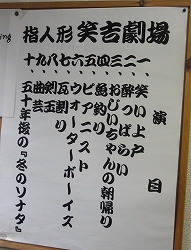 指人形 笑吉劇場
演目
一、笑い上戸
二、酔っぱらい
三、おじいちゃんの朝帰り
四、魚釣り
五、ピアニスト
六、ウォーターボーイズ
七、瓦割り
八、剣玉
九、曲芸
十、五十年後の『冬のソナタ』